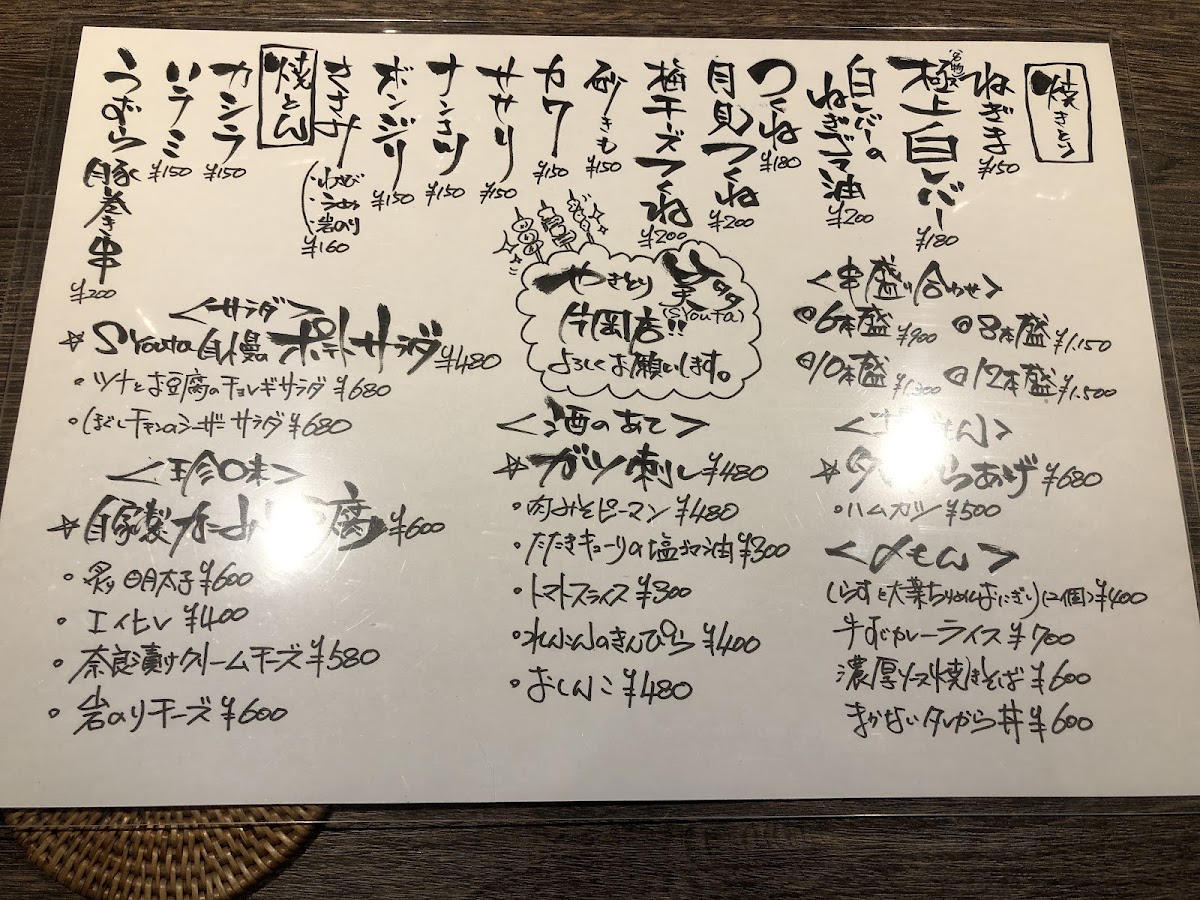 焼きとり
ねぎま ¥150
(名物)
極上白レバー ¥180
白レバーの
ねぎゴマ油 ¥200
つくね ¥180
月見つくね ¥200
梅チーズつくね ¥200
砂ぎも ¥150
カワ ¥150
セセリ ¥150
ナンコツ ¥150
ボンジリ ¥150
ささみ
・わさび
・うめ
・岩のり
¥160
焼とん
カシラ ¥150
ハラミ ¥150
うずら豚巻き串 ¥200
やきとり 笑タ
(SYouTa)
片岡店!!
よろしくお願いします。
<串盛り合わせ>
◎6本盛 ¥900 ◎8本盛 ¥1.150
◎10本盛 ¥1.300 ◎12本盛 ¥1.500
<サラダ>
☆SYouta自慢のポテトサラダ ¥480
・ツナとお豆腐のチョレギサラダ ¥680
・ほぐしチキンのシーザーサラダ ¥680
<珍味>
☆自家製 ¥600
・炙明太子 ¥600
・エイヒレ ¥400
・奈良漬けクリームチーズ ¥580
・岩のりチーズ ¥600
<酒のあて>
☆ガツ刺し ¥480
・肉みそピーマン ¥480
・たたきキューリの塩ゴマ油 ¥300
・トマトスライス ¥300
・れんこんのきんぴら ¥400
・おしんこ ¥480
☆ らあげ ¥680
・ハムカツ ¥500
<〆もん>
しらすと大葉ちりめんおにぎり(2個) ¥400
牛すじカレーライス ¥700
濃厚ソース焼きそば ¥600
まかないタレから丼 ¥600